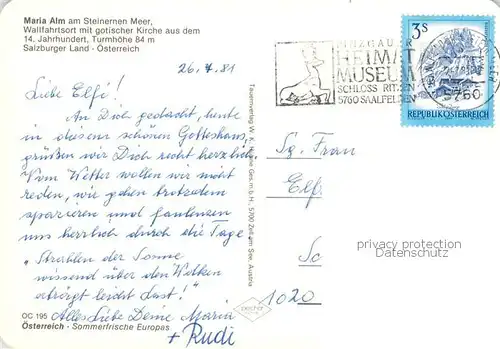 Maria Alm am Steinernen Meer,
Wallfahrtsort mit gotischer Kirche aus dem
14. Jahrhundert, Turmhöhe 84 m
Salzburger Land - Österreich
26. 7. 81
Liebe Elfi!
An Dich gedacht, heute
in diesem schönen Gotteshaus,
grüßen wir Dich recht herzlich.
Vom Wetter wollen wir nicht
reden, wir gehen trotzdem
spazieren und faulenzen
uns herrlich durch die Tage
"Strahlen der Sonne
wissend über den Wolken
erträgt leicht Last!"
Alles Liebe Deine Maria
+ Rudi
OC 195
Österreich - Sommerfrische Europas
PINZGAUER
HEIMAT
MUSEUM
SCHLOSS RITZEN
5760 SAALFELDEN
3s
REPUBLIK ÖSTERREICH
5760
Sg. Frau
Elf
1020
privacy protection
Datenschutz